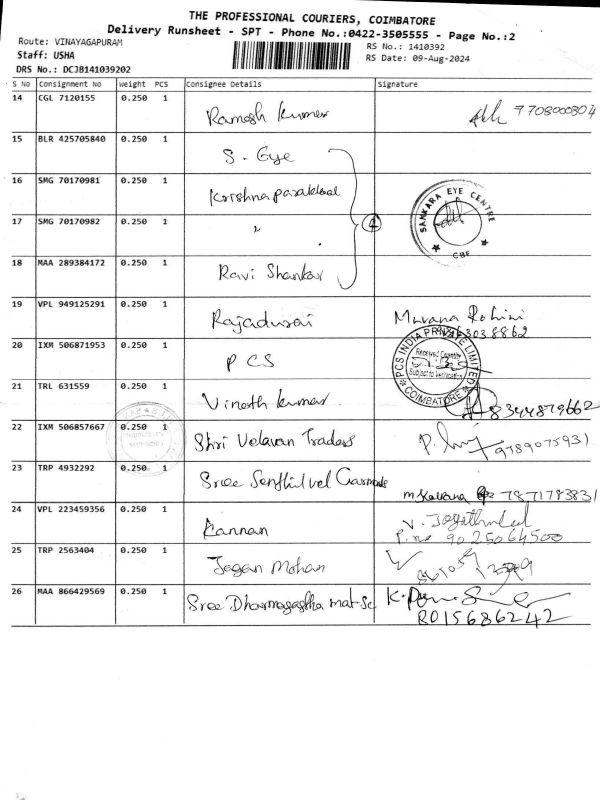 THE PROFESSIONAL COURIERS, COIMBATORE
Delivery Runsheet - SPT - Phone No.:0422-3505555 - Page No.:2
Route: VINAYAGAPURAM
RS No.: 1410392
Staff: USHA
RS Date: 09-Aug-2024
DRS No.: DCJB141039202
S No Consignment No Weight PCS Consignee Details Signature
14 CGL 7120155 0.250 1 Ramesh kumar 9708000804
15 BLR 425705840 0.250 1 S. Eye
16 SMG 70170981 0.250 1 Krishna
④
SANKARA EYE CENTRE
CBE
17 SMG 70170982 0.250 1 "
18 MAA 289384172 0.250 1 Ravi Shankar
19 VPL 949125291 0.250 1 Rajadurai Rohini
20 IXM 506871953 0.250 1 PCS
PCS INDIA PRIVATE LIMITED
Received Quantity
Subject to Verification
COIMBATORE
21 TRL 631559 0.250 1 Vinoth kumar 8344879662
22 IXM 506857667 0.250 1 Shri Velavan Traders 9789075931
23 TRP 4932292 0.250 1 Sree Senthilvel Garments 7871783831
24 VPL 223459356 0.250 1 Kannan V.
P.no 9025064500
25 TRP 2563404 0.250 1 Jegan Mohan
26 MAA 866429569 0.250 1 Sree Dharmasastha mat-Sc K.
8015686242